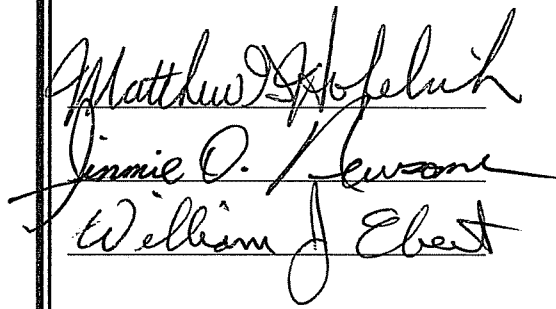 Matthew G Hofelich
Jimmie O. Newsome
William J Ebert